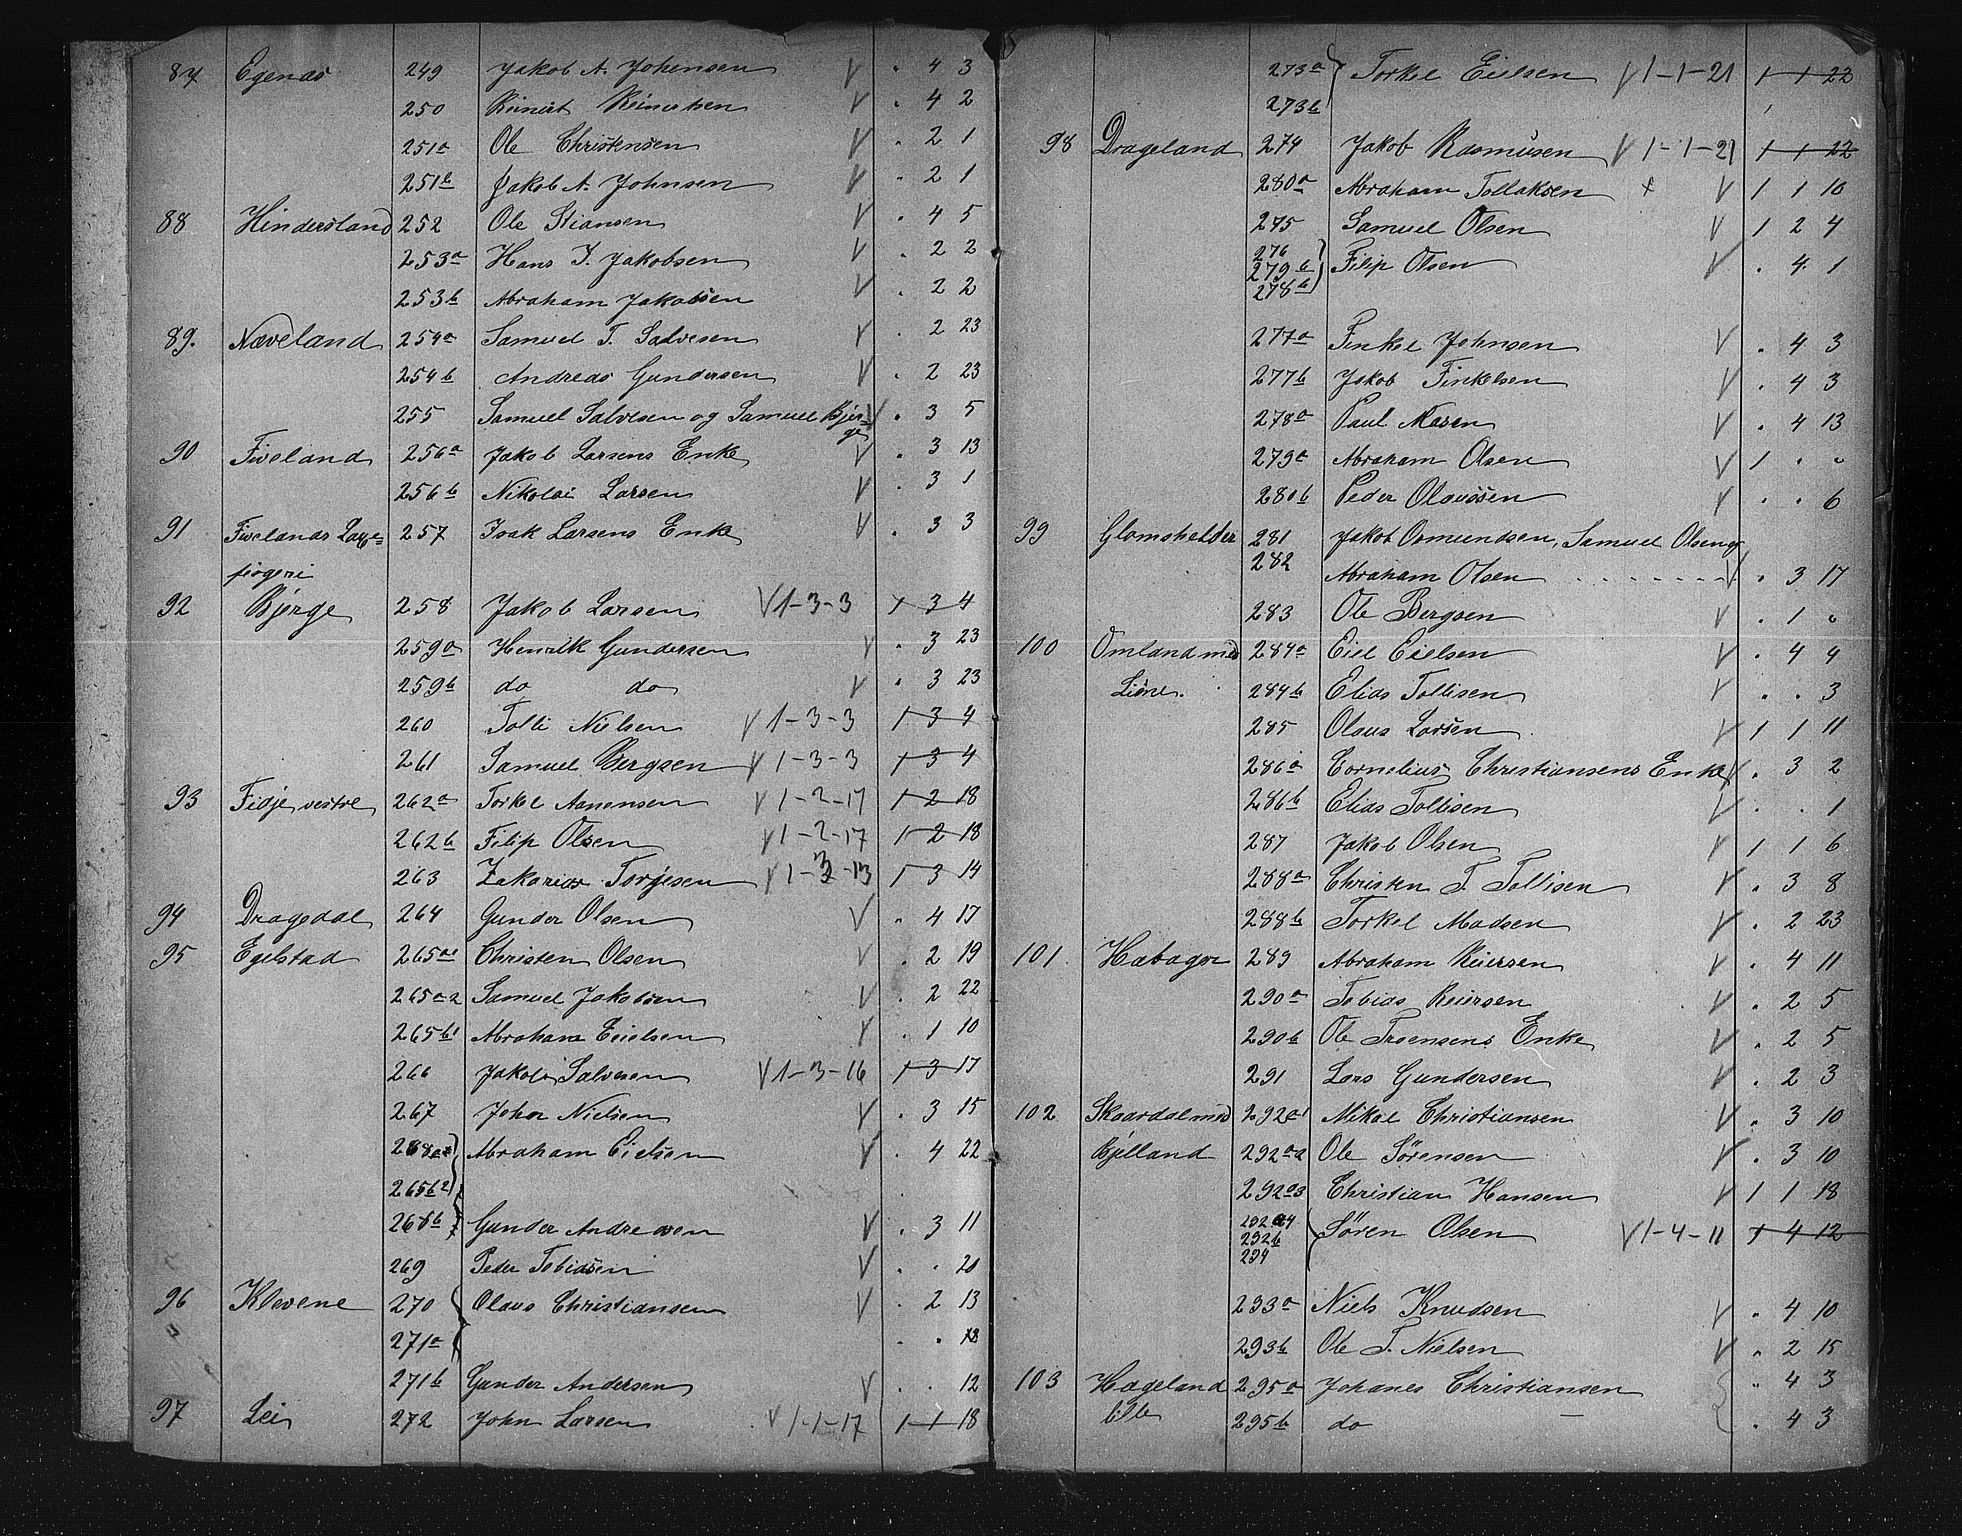 87 Egenæs 249 Jakob A. Johensen V . 4 3
250 Reinert Reinertsen V . 4 2
251a Ole Christensen V . 2 1
251b Jakob A. Johnsen V . 2 1
88 Hindersland 252 Ole Stiansen V . 4 5
253a Hans J. Jakobsen V . 2 2
253b Abraham Jakobsen V . 2 2
89. Næveland 254a Samuel T. Salvesen V . 2 23
254b Andreas Gundersen V . 2 23
255 Samuel Salvesen og Samuel Bjør= V . 3 5
ge
90 Fiveland 256a Jakob Larsens Enke V . 3 13
256b Nikolai Larsen V . 3 1
91 Fivelands Laxe= 257 Isak Larsens Enke V . 3 3
fiogeri
92 Bjørge 258 Jakob Larsen V 1-3-3 1 3 4
259a Henrik Gundersen V . 3 23
259b do do V . 3 23
260 Tolli Nielsen V 1-3-3 1 3 4
261 Samuel Bergsen V 1-3-3 1 3 4
93 Fidje vestre 262a Torkel Aanensen V 1-2-17 1 2 18
262b Filip Olsen V 1-2-17 1 2 18
263 Zakarias Torjesen V 1-3-13 1 3 14
94 Dragedal 264 Gunder Olsen V . 4 17
95 Egelstad 265a1 Christen Olsen V . 2 19
265a2 Samuel Jakobsen V . 2 22
265b1 Abraham Eielsen V . 1 10
266 Jakob Salvesen V 1-3-16 1 3 17
267 John Nielsen V . 3 15
268a Abraham Eielsen V . 4 22
265b2
268b Gunder Andresen V . 3 11
269 Peder Tobiasen V . . 20
96 Klevene 270 Olaus Christiansen V . 2 13
271a . . 18
271b Gunder Andersen V . . 12
97 Lei 272 John Larsen V 1-1-17 1 1 18
273a Torkel Eielsen V 1-1-21 1 1 22
273b
98 Drageland 274 Jakob Rasmusen V 1-1-21 1 1 22
280a Abraham Tollaksen + V 1 1 10
275 Samuel Olsen V 1 2 4
276
279b Filip Olsen V . 4 1
278b
277a Finkel Johnsen V . 4 3
277b Jakob Finkelsen V . 4 3
278a Paul V . 4 13
279a Abraham Olsen V 1 . .
280b Peder Olaussen V . . 6
99 Glomshelder 281 Jakob Osmundsen, Samuel Olsen og
282 Abraham Olsen V . 3 17
283 Ole Bergsen V . 1 .
100 Omland med 284a Eiel Eielsen V . 4 4
Liene. 284b Elias Tollisen V . . 3
285 Olaus Larsen V 1 1 11
286a Cornelius Christiansens Enke V . 3 2
286b Elias Tollisen V . . 1
287 Jakob Olsen V 1 1 6
288a Christen T. Tollisen V . 3 8
288b Torkel Madsen V . 2 23
101. Habager 289 Abraham Reiersen V . 4 11
290a Tobias Reiersen V . 2 5
290b Ole Enke V . 2 5
291 Lars Gundersen V . 2 3
102 Skaardal med 292a1 Mikal Christiansen V . 3 10
Bjelland 292a2 Ole Sørensen V . 3 10
292a3 Christian Hansen V 1 1 18
292a4 Søren Olsen V 1-4-11 1 4 12
292b
294
293a Niels Knudsen V . 4 10
293b Ole T. Nielsen V . 2 15
103 Hægeland 295a Johanes Christiansen . 4 3
lille 295b do — . 4 3